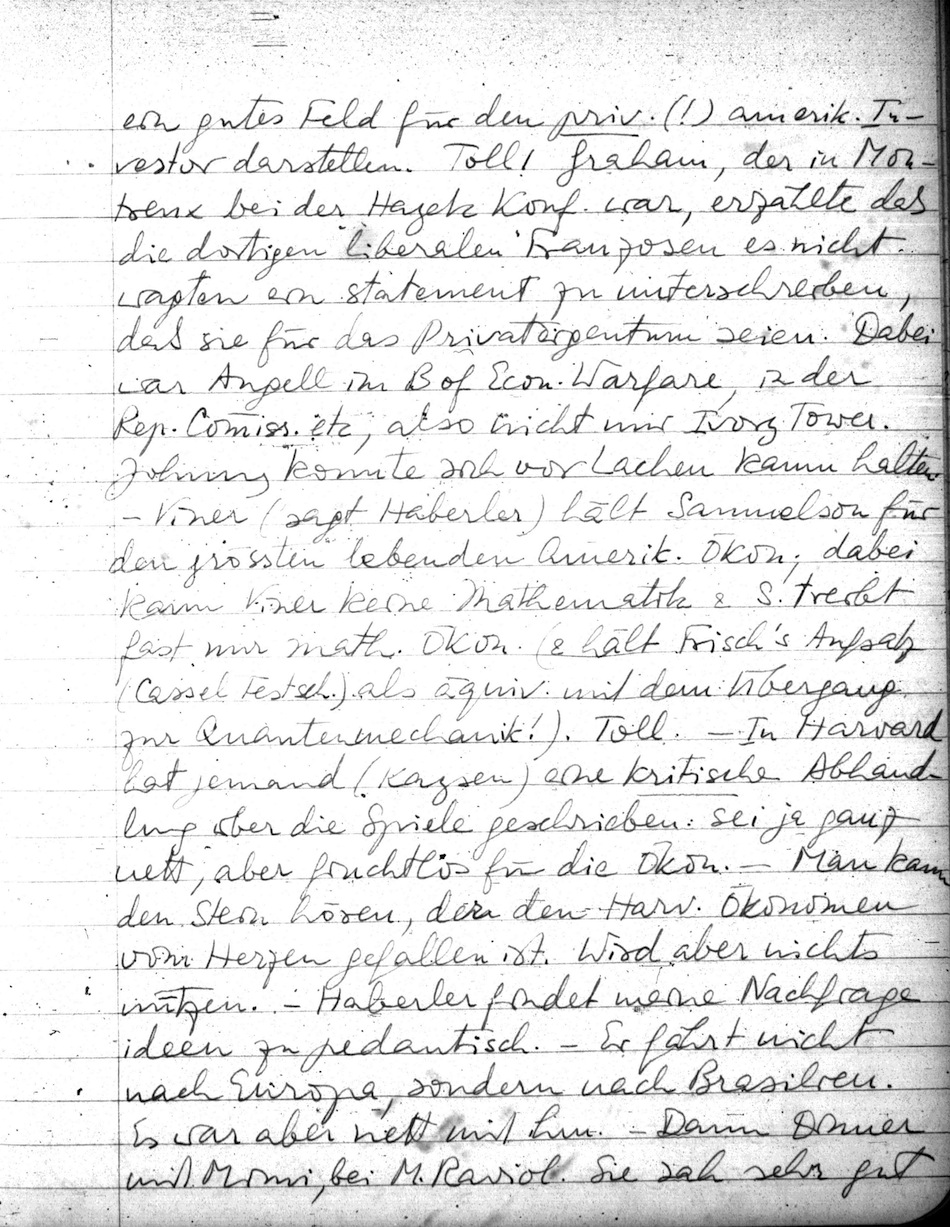 ein gutes Feld für den priv. (!) amerik. In-
vestor darstellen. Toll! Graham, der in Mon-
treux bei der Hayek Konf. war, erzählte das
die dortigen "liberalen" Franzosen es nicht
wagten ein statement zu unterschreiben,
das sie für das Privateigentum seien. Dabei
war Angell im B of Econ. Warfare, in der
Rep. Comiss. etc, also nicht nur Ivory Tower.
Johnny konnte sich vor Lachen kaum halten.
– Viner (sagt Haberler) hält Samuelson für
den grössten lebenden Amerik. Ökon., dabei
kann Viner keine Mathematik & S. treibt
fast nur math. Ökon. (& hält Frisch's Aufsatz
(Cassel Festsch.) als äquiv. mit dem Übergang
zur Quantenmechanik!). Toll. – In Harvard
hat jemand (Kaysen) eine kritische Abhand-
lung über die Spiele geschrieben: sei ja ganz
nett, aber fruchtlos für die Ökon. – Man kann
den Stein hören, der den Harv. Ökonomen
vom Herzen gefallen ist. Wird aber nichts
nützen. – Haberler findet meine Nachfrage
ideen zu pedantisch. – Er fährt nicht
nach Europa, sondern nach Brasilien.
Es war aber nett mit ihm. – Dann Dinner
mit Mimi, bei M. Raviol. Sie sah sehr gut